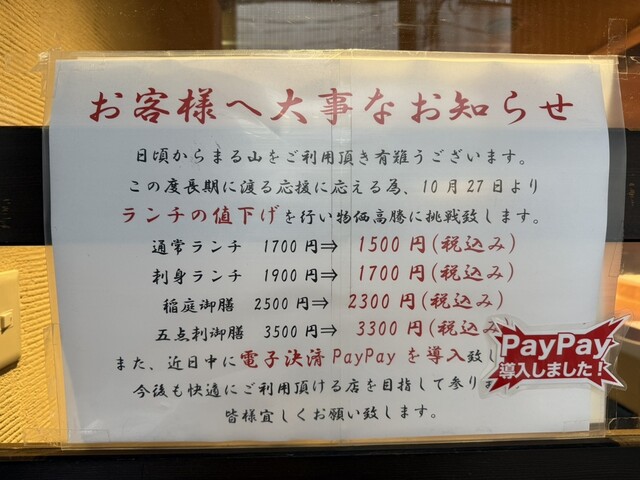 お客様へ大事なお知らせ
日頃からまる山をご利用頂き有難うございます。
この度長期に渡る応援に応える為、10月27日より
ランチの値下げを行い物価高騰に挑戦致します。
通常ランチ 1700円⇒ 1500円(税込み)
刺身ランチ 1900円⇒ 1700円(税込み)
稲庭御膳 2500円⇒ 2300円(税込み)
五点刺御膳 3500円⇒ 3300円(税込み)
また、近日中に電子決済PayPayを導入致し
今後も快適にご利用頂ける店を目指して参りま
皆様宜しくお願い致します。
PayPay
導入しました!